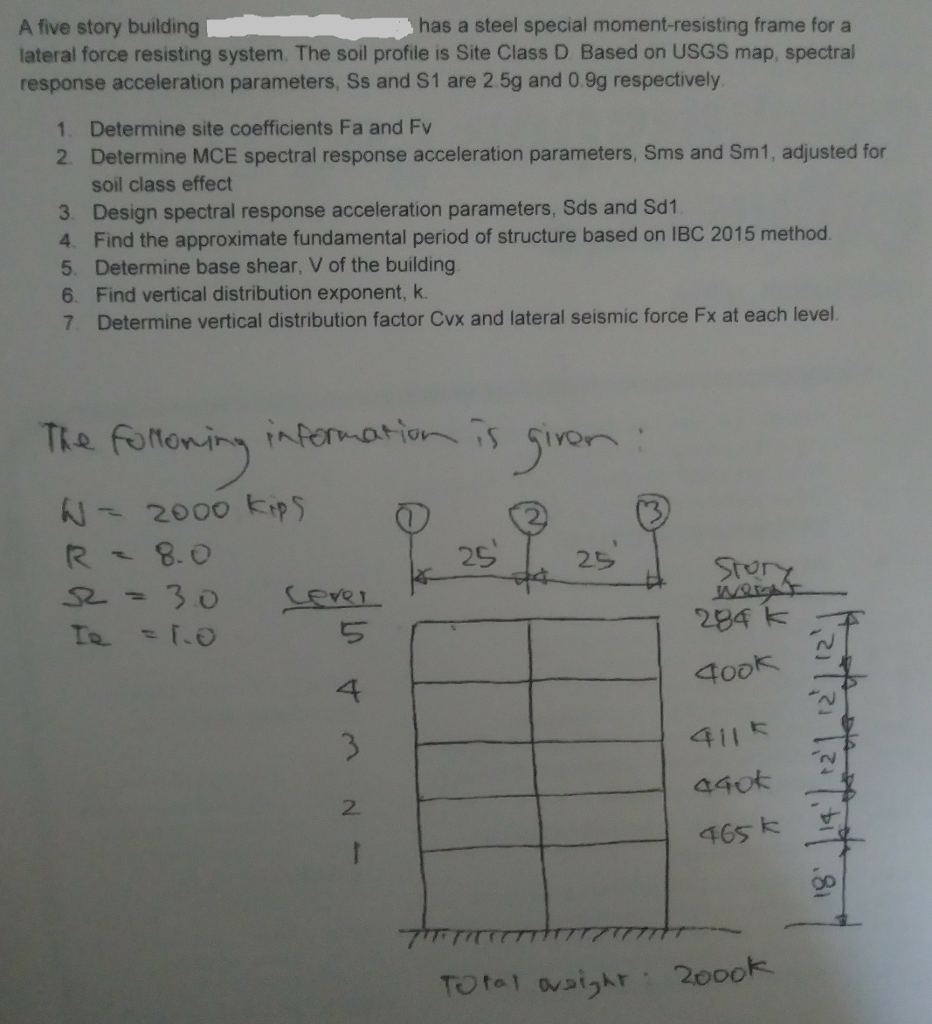 A five story building has a steel special moment-resisting frame for a
lateral force resisting system. The soil profile is Site Class D. Based on USGS map, spectral
response acceleration parameters, Ss and S1 are 2.5g and 0.9g respectively.
1. Determine site coefficients Fa and Fv
2. Determine MCE spectral response acceleration parameters, Sms and Sm1, adjusted for
soil class effect
3. Design spectral response acceleration parameters, Sds and Sd1.
4. Find the approximate fundamental period of structure based on IBC 2015 method.
5. Determine base shear, V of the building.
6. Find vertical distribution exponent, k.
7. Determine vertical distribution factor Cvx and lateral seismic force Fx at each level.
The following information is given:
W = 2000 kips
R = 8.0
Ω = 3.0
Ie = 1.0
1 2 3
25' 25'
Level
Story
weight
5 284 K 12'
4 400K 12'
3 411 K 12'
2 440K 14'
1 465 K 18'
Total weight: 2000K